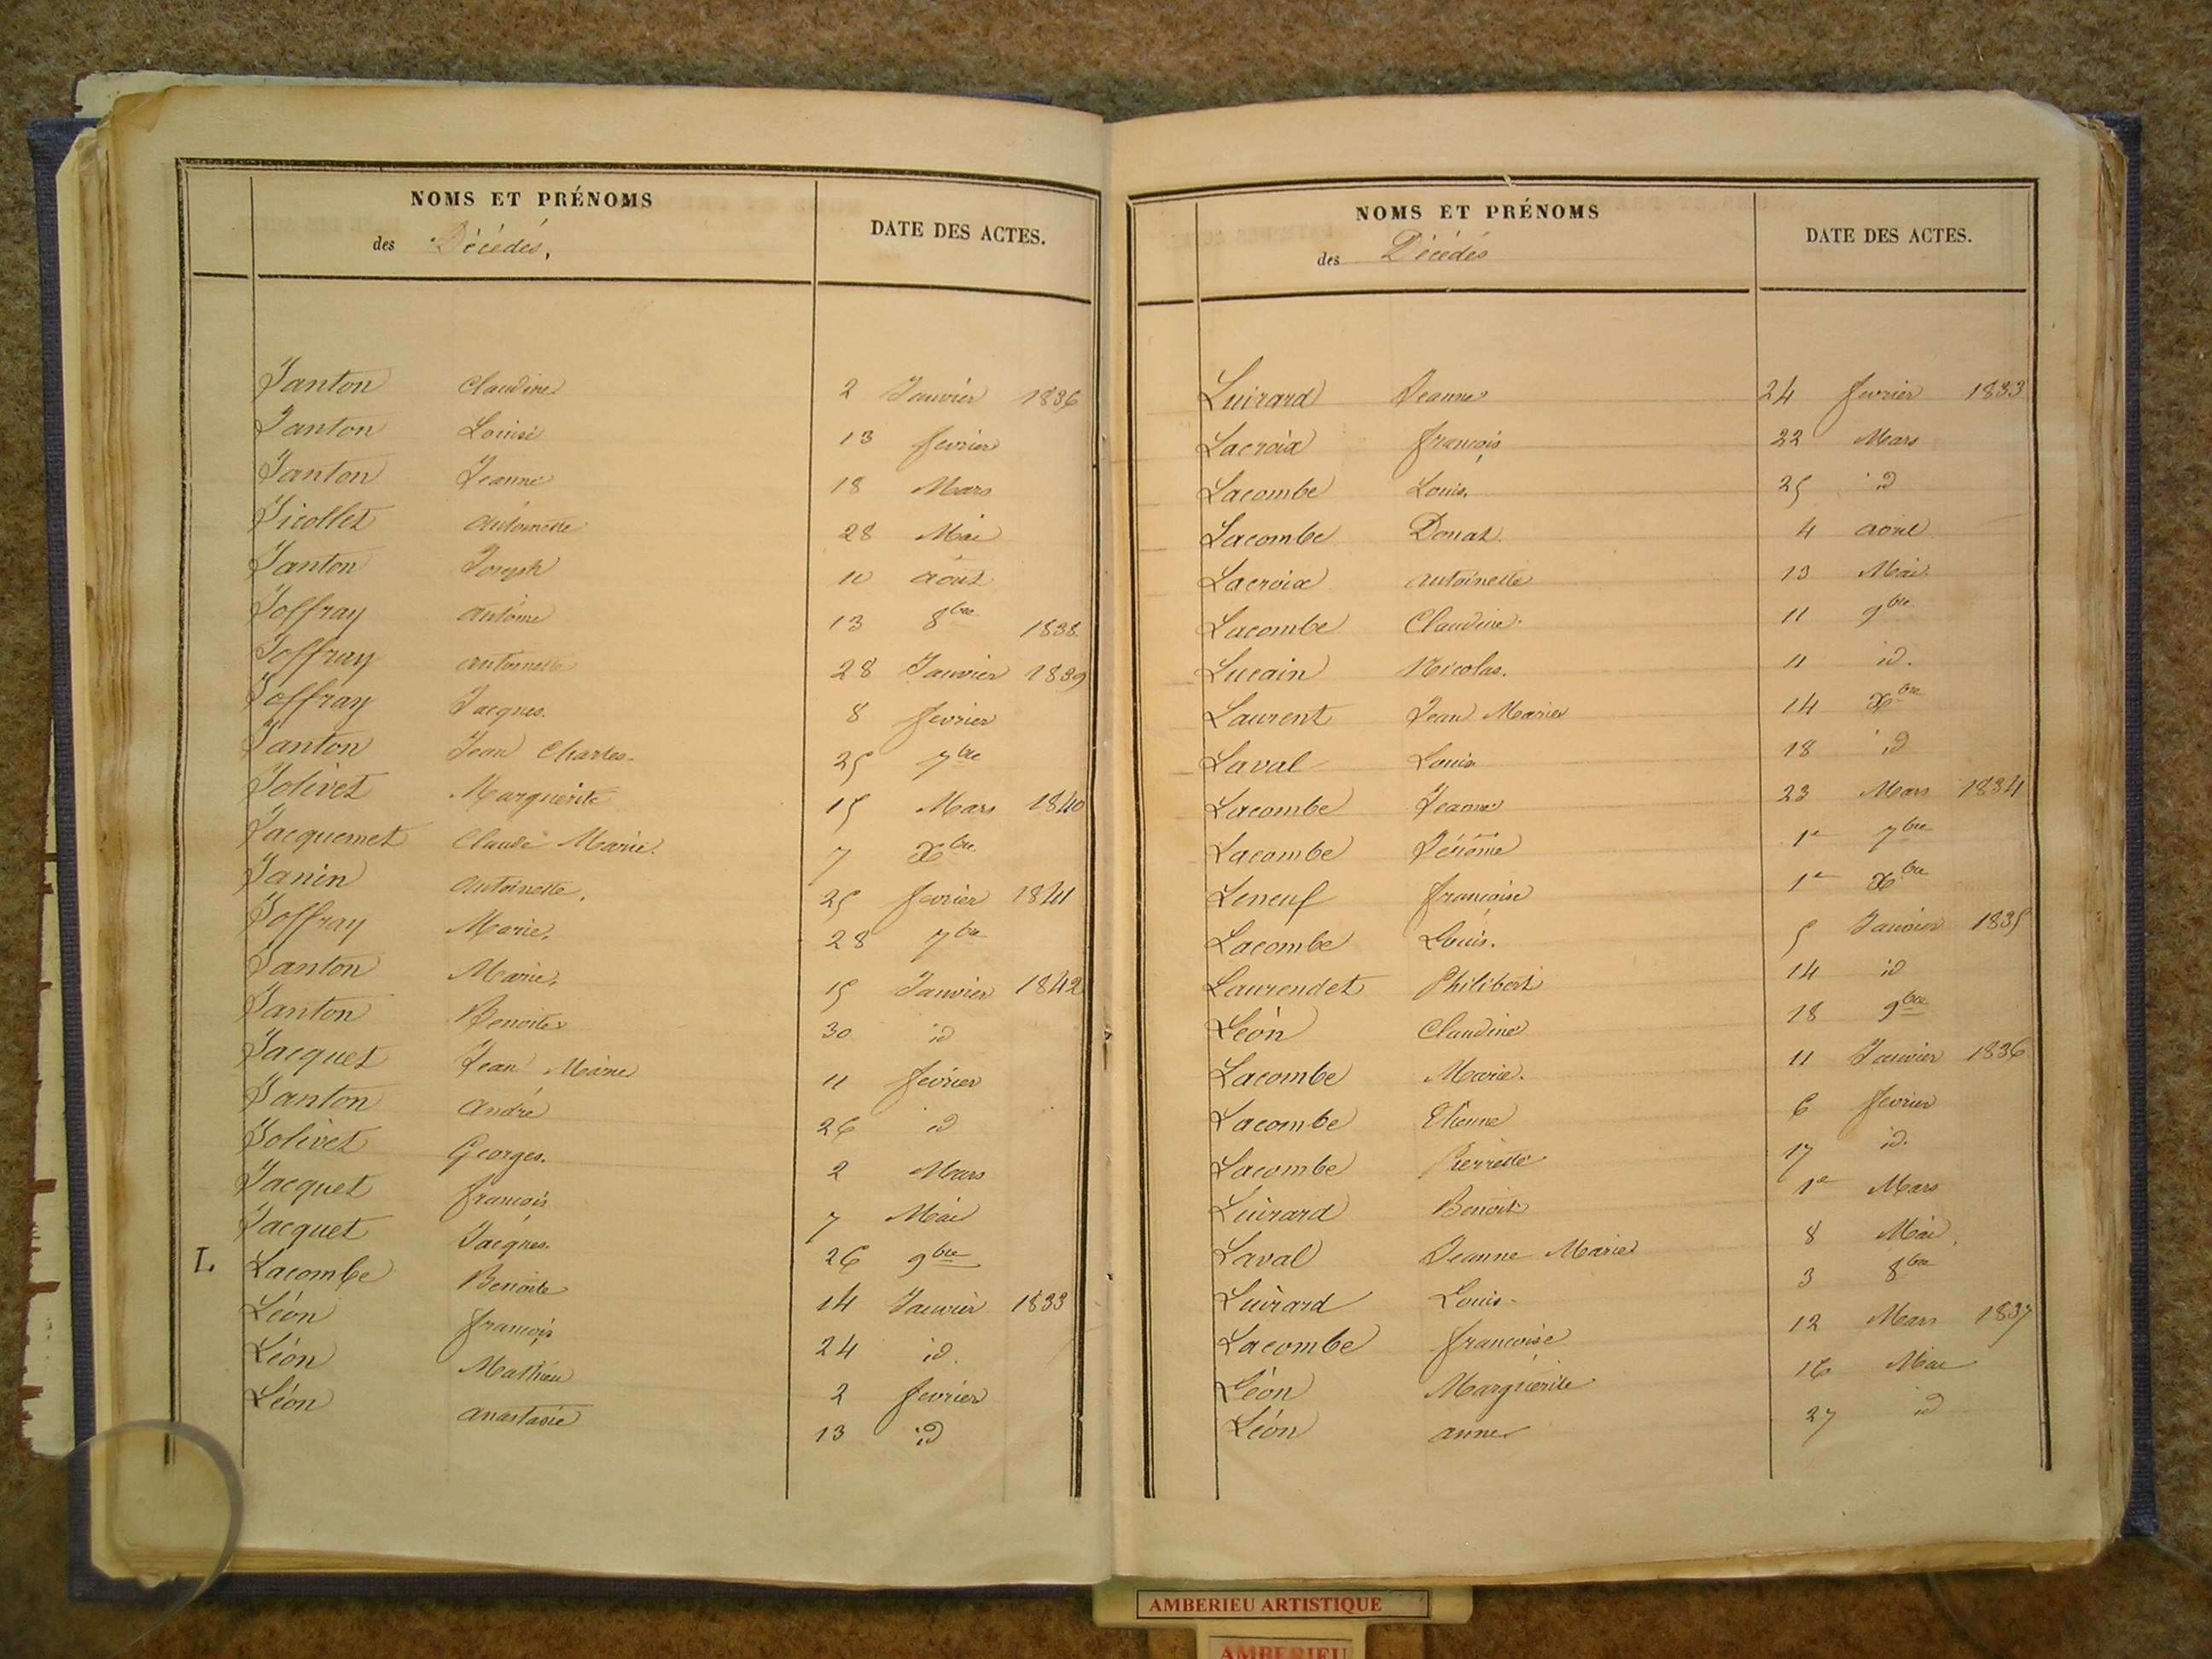 NOMS ET PRÉNOMS
des Décédés.
DATE DES ACTES.
Janton Claudine 2 Janvier 1836
Janton Louise 13 fevrier
Janton Jeanne 18 Mars
Jicollet antoinette 28 Mai
Janton Joseph 10 août
Joffray antoine 13 8bre 1838
Joffray antoinette 28 Janvier 1839
Joffray Jacques. 8 fevrier
Janton Jean Charles. 25 7bre
Jolivet Marguerite 15 Mars 1840
Jacquemet Claude Marie. 7 Xbre
Janin antoinette. 25 fevrier 1841
Joffray Marie. 28 7bre
Janton Marie. 15 Janvier 1842
Janton Benoite 30 id
Jacquet Jean Marie 11 fevrier
Janton andré 26 id
Jolivet Georges. 2 Mars
Jacquet francois 7 Mai
Jacquet Jacques. 26 9bre
L. Lacombe Benoite 14 Janvier 1833
Léon françois 24 id.
Léon Mathieu 2 fevrier
Léon anastasie 13 id
NOMS ET PRÉNOMS
des Décédés
DATE DES ACTES.
Luirard Jeanne 24 fevrier 1833
Lacroix françois 22 Mars
Lacombe Louis. 25 id
Lacombe Donat. 4 avril
Lacroix antoinette 13 Mai
Lacombe Claudine. 11 9bre
Lucain Nicolas. 11 id.
Laurent Jean Marie 14 Xbre
Laval Louis 18 id
Lacombe Jeanne 23 Mars 1834
Lacombe Jérôme 1er 7bre
Leneuf francoise 1er Xbre
Lacombe Louis. 5 Janvier 1835
Laurendet Philibert 14 id
Léon Claudine 18 9bre
Lacombe Marie. 11 Janvier 1836
Lacombe Etienne 6 fevrier
Lacombe Pierrette 17 id.
Luirard Benoit 1er Mars
Laval Jeanne Marie 8 Mai.
Luirard Louis 3 8bre
Lacombe francoise 12 Mars 1837
Léon Marguerite 16 Mai
Léon anne 27 id
AMBERIEU ARTISTIQUE
AMBERIEU